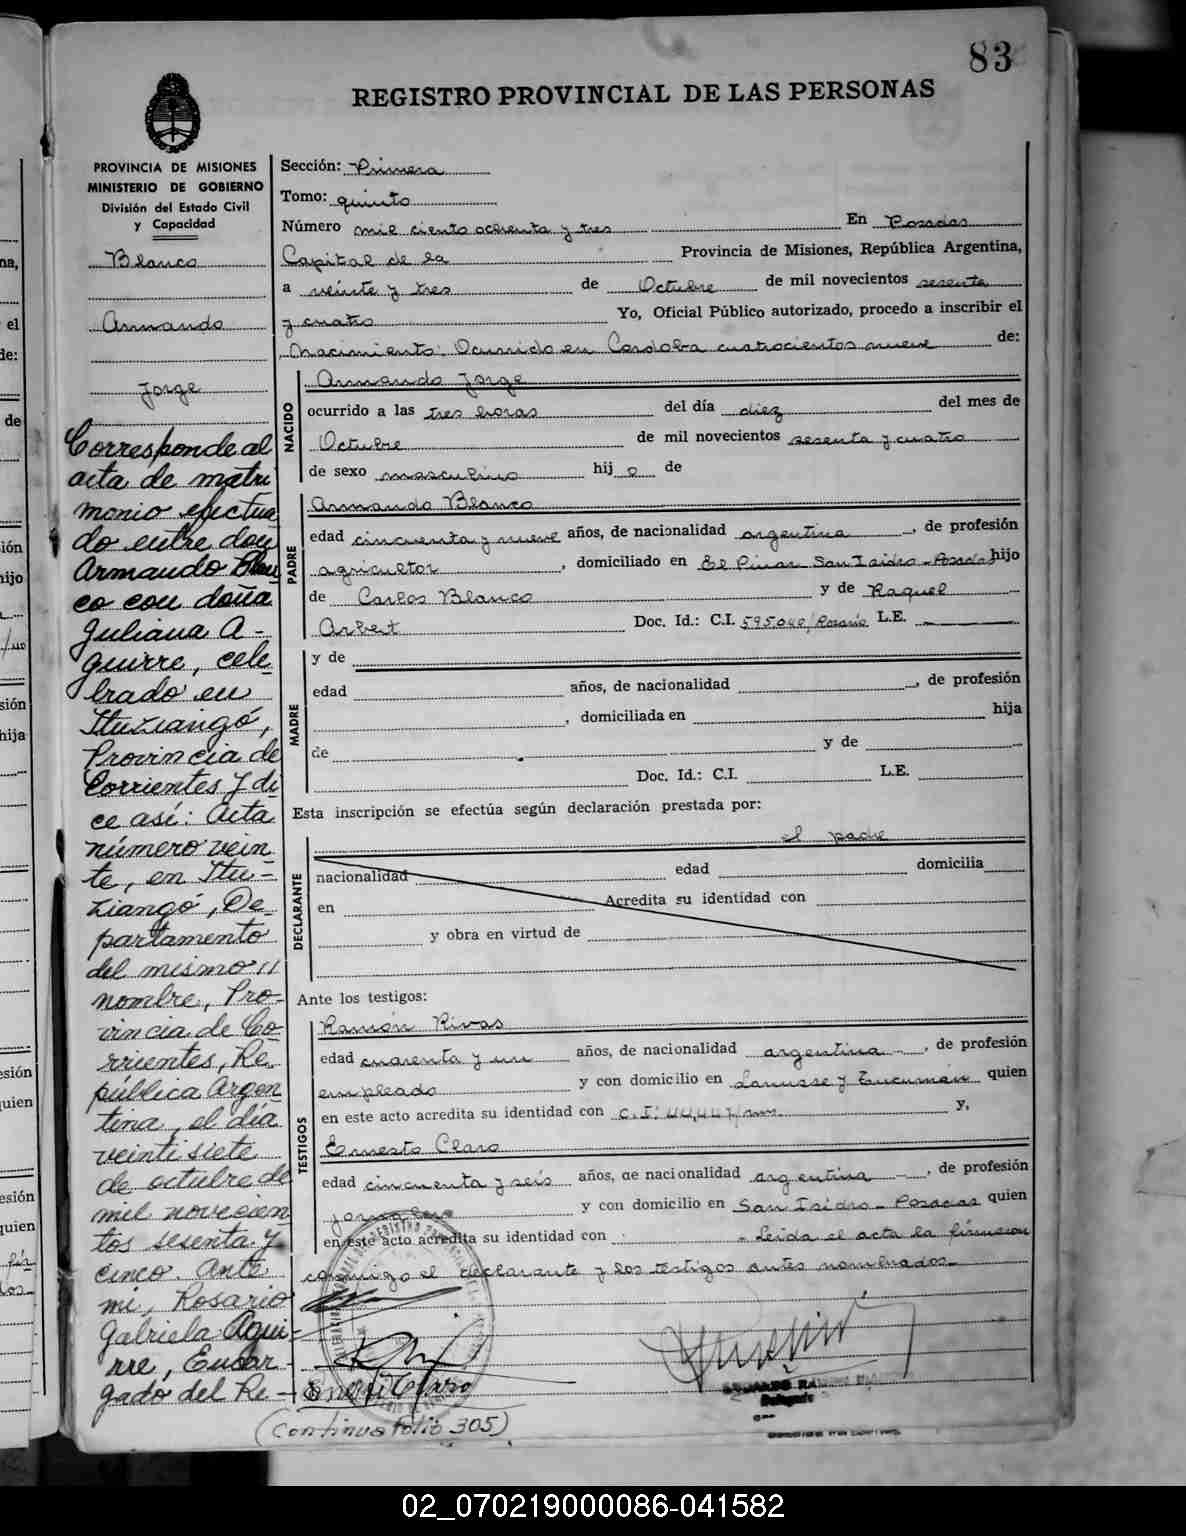 83
REGISTRO PROVINCIAL DE LAS PERSONAS
PROVINCIA DE MISIONES
MINISTERIO DE GOBIERNO
División del Estado Civil
y Capacidad
Blanco
Armando
Jorge
Corresponde al
acta de matri
monio efectua
do entre don
Armando Blan
co con doña
Juliana A-
guirre, cele-
brado en
Ituzaingó,
Provincia de
Corrientes y di
ce así: Acta
número vein
te, en Itu-
zaingó, De-
partamento
del mismo
nombre, Pro-
vincia de Co
rrientes, Re
pública Argen
tina, el día
veintisiete
de octubre de
mil novecien
tos sesenta y
cinco. Ante
mi, Rosario
Gabriela Agui-
rre, Encar
gado del Re-
(Continua folio 305)
Sección: Primera
Tomo: quinto
Número mil ciento ochenta y tres En Posadas
Capital de la Provincia de Misiones, República Argentina,
a veinte y tres de Octubre de mil novecientos sesenta
y cuatro Yo, Oficial Público autorizado, procedo a inscribir el
Nacimiento: Ocurrido en Cordoba cuatrocientos nueve de:
NACIDO
Armando Jorge
ocurrido a las tres horas del día diez del mes de
Octubre de mil novecientos sesenta y cuatro
de sexo masculino hij o de
PADRE
Armando Blanco
edad cincuenta y nueve años, de nacionalidad argentina, de profesión
agricultor, domiciliado en El Pinar San Isidro - Posadas hijo
de Carlos Blanco y de Raquel
Arbert Doc. Id.: C.I. 595.040/Rosario L.E.
MADRE
y de
edad años, de nacionalidad, de profesión
, domiciliada en hija
de y de
Doc. Id.: C.I. L.E.
Esta inscripción se efectúa según declaración prestada por:
el padre
DECLARANTE
nacionalidad edad domicilia
en Acredita su identidad con
y obra en virtud de
Ante los testigos:
TESTIGOS
Ramón Rivas
edad cuarenta y un años, de nacionalidad argentina -, de profesión
empleado y con domicilio en Lanusse y Tucumán quien
en este acto acredita su identidad con C.I: y,
Ernesto Claro
edad cincuenta y seis años, de nacionalidad argentina -, de profesión
jornalero y con domicilio en San Isidro - Posadas quien
en este acto acredita su identidad con - Leida el acta la firman
conmigo el declarante y los testigos antes nombrados -
Ernesto Claro
02_070219000086-041582